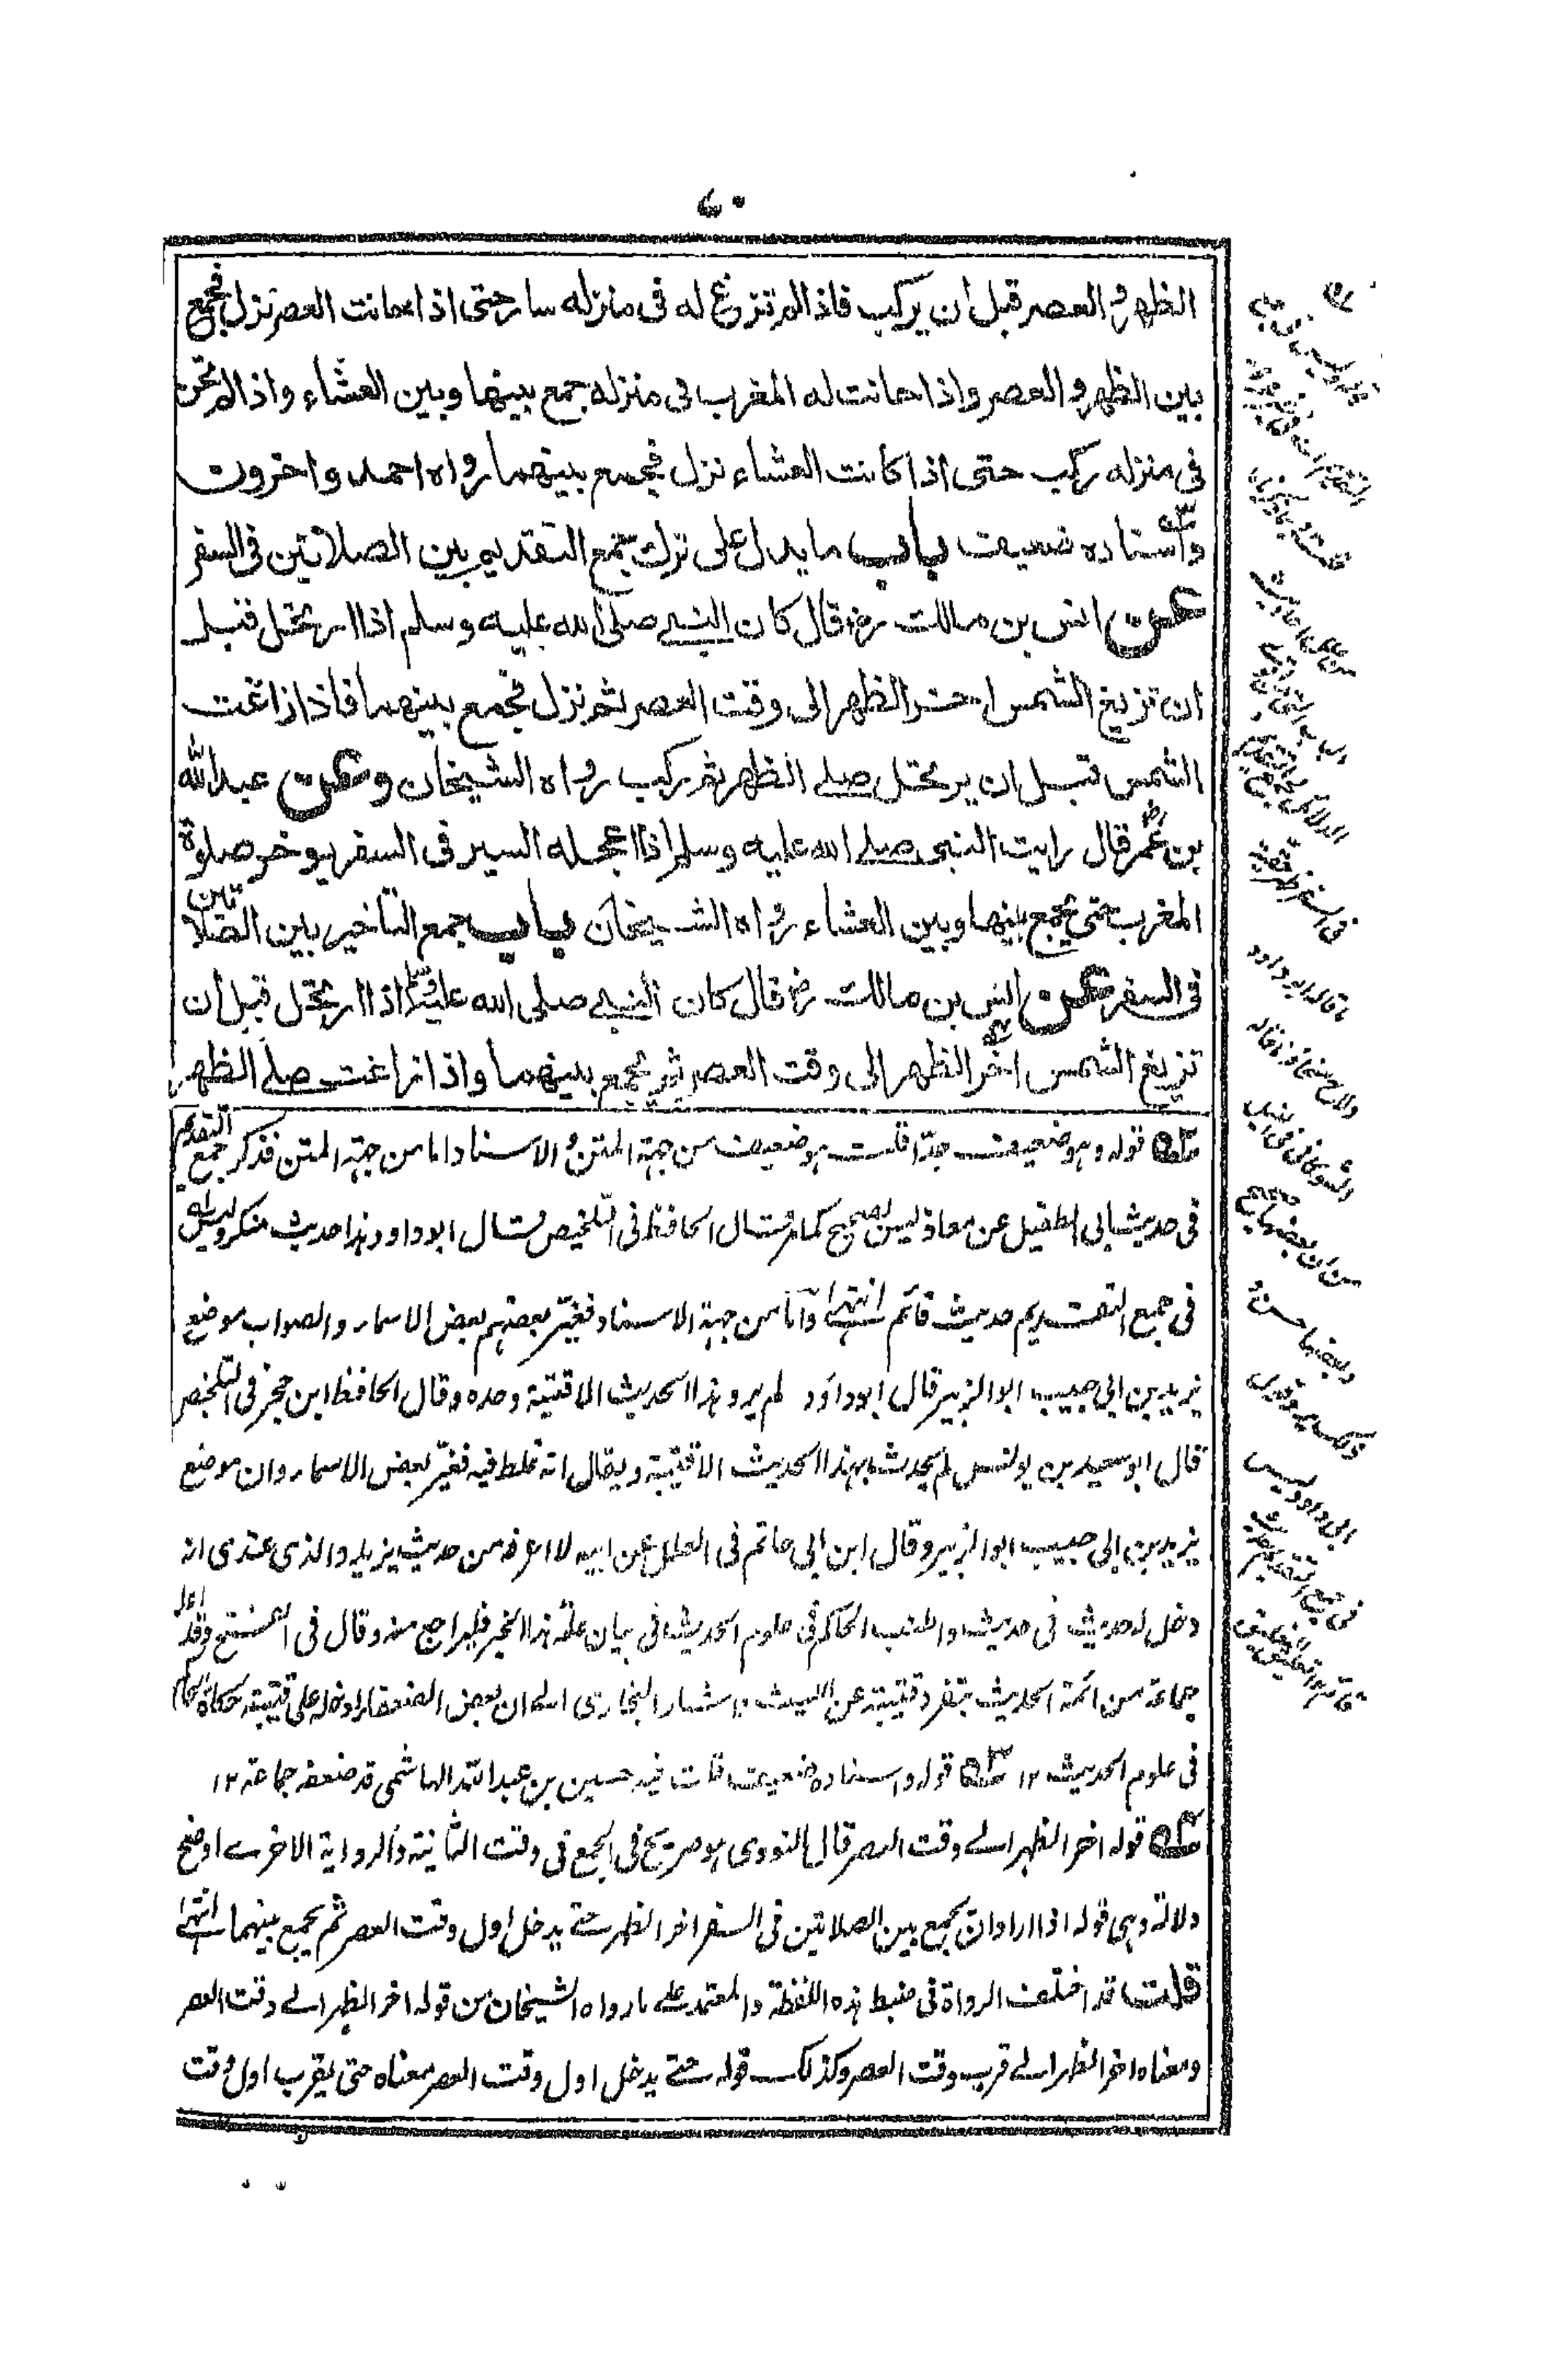 ٧٠
الظهر و العصر قبل ان يركب فاذا لم تزغ له فى منزله سار حتى اذا حانت العصر نزل فجمع
بين الظهر و العصر واذا حانت له المغرب فى منزله جمع بينها وبين العشاء واذا لم تحن
فى منزله ركب حتى اذا كانت العشاء نزل فجمع بينهما رواه احمد واخرون
واسناده ضعيف باب ما يدل على ترك جمع التقديم بين الصلاتين فى السفر
عن انس بن مالك رض قال كان النبى صلى الله عليه وسلم اذا ارتحل قبل
ان تزيغ الشمس اخر الظهر الى وقت العصر ثم نزل فجمع بينهما فاذا زاغت
الشمس قبل ان يرتحل صلے الظهر ثم ركب رواه الشيخان وعن عبد الله
بن عمر رض قال رايت النبى صلے الله عليه وسلم اذا اعجله السير فى السفر يوخر صلوة
المغرب حتى يجمع بينها وبين العشاء رواه الشيخان باب جمع التاخير بين الصلاتين
فى السفر عن انس بن مالك رض قال كان النبى صلى الله عليه وسلم اذا ارتحل قبل ان
تزيغ الشمس اخر الظهر الى وقت العصر ثم يجمع بينهما واذا زاغت صلے الظهر
قوله وهو ضعيف جدّا قلت هو ضعيف من جهة المتن و الاسناد اما من جهة المتن فذكر جمع التقديم
فى حديث ابى الطفيل عن معاذ ليس بصحيح كما مر قال الحافظ فى التلخيص قال ابو داود هذا حديث منكر وليس
فى جمع التقديم حديث قائم انتهى واما من جهة الاسناد فغيّر بعضهم بعض الاسماء والصواب موضع
يزيد بن ابى حبيب ابو الزبير قال ابو داود لم يرو هذا الحديث الا قتيبة وحده وقال الحافظ ابن حجر فى التلخيص
قال ابو سعيد بن يونس لم يحدث بهذا الحديث الا قتيبة ويقال انه غلط فيه فغيّر بعض الاسماء وان موضع
يزيد بن ابى حبيب ابو الزبير وقال ابن ابى حاتم فى العلل عن ابيه لا اعرفه من حديث يزيد والذى عندى انه
دخل له حديث فى حديث واطنب الحاكم فى علوم الحديث فى بيان علّة هذا الخبر فليراجع منه وقال فى الفتح وقد اعله
جماعة من ائمة الحديث بتفرد قتيبة عن الليث واشار البخارى الے ان بعض الضعفاء ادخله على قتيبة حكاه الحاكم
فى علوم الحديث ١٢ قوله واسناده ضعيف قلت فيه حسين بن عبد الله الهاشمى قد ضعفه جماعة ١٢
قوله اخر الظهر الے وقت العصر قال النووى هو صريح فى الجمع فى وقت الثانية والرواية الاخرے اوضح
دلالة وهى قوله اذا اراد ان يجمع بين الصلاتين فى السفر اخر الظهر حتے يدخل اول وقت العصر ثم يجمع بينهما انتهى
قلت قد اختلف الرواة فى ضبط هذه اللفظة والمعتمد علے ما رواه الشيخان من قوله اخر الظهر الے وقت العصر
ومعناه اخر الظهر الے قرب وقت العصر وكذلك قوله حتے يدخل اول وقت العصر معناه حتى يقرب اول وقت